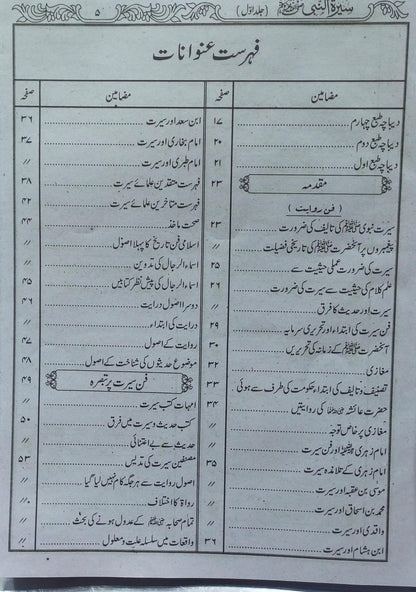 سیرۃ النبی ﷺ (جلد اوّل) ۵
فہرست عنوانات
مضامین صفحہ
دیباچہ طبع چہارم ۱۷
دیباچہ طبع دوم ۲۰
دیباچہ طبع اول ۲۱
مقدمہ ۲۳
(فن روایت)
سیرت نبوی ﷺ کی تالیف کی ضرورت ۲۳
پیغمبروں پر آنحضرت ﷺ کی تاریخی فضیلت ״
سیرت کی ضرورت عملی حیثیت سے ۲۵
علم کلام کی حیثیت سے سیرت کی ضرورت ۲۶
سیرت اور حدیث کا فرق ״
فن سیرت کی ابتداء اور تحریری سرمایہ ۲۹
آنحضرت ﷺ کے زمانہ کی تحریریں ۳۰
مغازی ۳۲
تصنیف و تالیف کی ابتداء حکومت کی طرف سے ہوئی ۳۳
حضرت عائشہ کی روایتیں ۳۴
مغازی پر خاص توجہ ״
امام زہری اور فن سیرت ״
امام زہری کے تلامذہ سیرت ۳۵
موسیٰ بن عقبہ اور سیرت ״
محمد بن اسحاق اور سیرت ״
واقدی اور سیرت ״
ابن ہشام اور سیرت ۳۶
مضامین صفحہ
ابن سعد اور سیرت ۳۶
امام بخاری اور سیرت ۳۷
امام طبری اور سیرت ״
فہرست متقدمین علمائے سیرت ۳۸
فہرست متاخرین علمائے سیرت ۴۲
صحت ماخذ ۴۴
اسلامی فن تاریخ کا پہلا اصول ״
اسماء الرجال کی تدوین ״
اسماء الرجال کی پیش نظر کتابیں ۴۵
دوسرا اصول درایت ۴۶
درایت کی ابتداء ״
روایت کے اصول ۴۷
موضوع حدیثوں کی شناخت کے اصول ۴۸
فن سیرت پر تبصرہ ۴۹
امہات کتب سیرت ״
کتب حدیث و سیرت میں فرق ۵۰
حدیث سے بے اعتنائی ״
مصنفین سیرت کی تدلیس ۵۳
اصول روایت سے ہر جگہ کام نہیں لیا گیا ״
رواۃ کا اختلاف ״
تمام صحابہ کے عدول ہونے کی بحث ״
واقعات میں سلسلہ علت و معلول ״